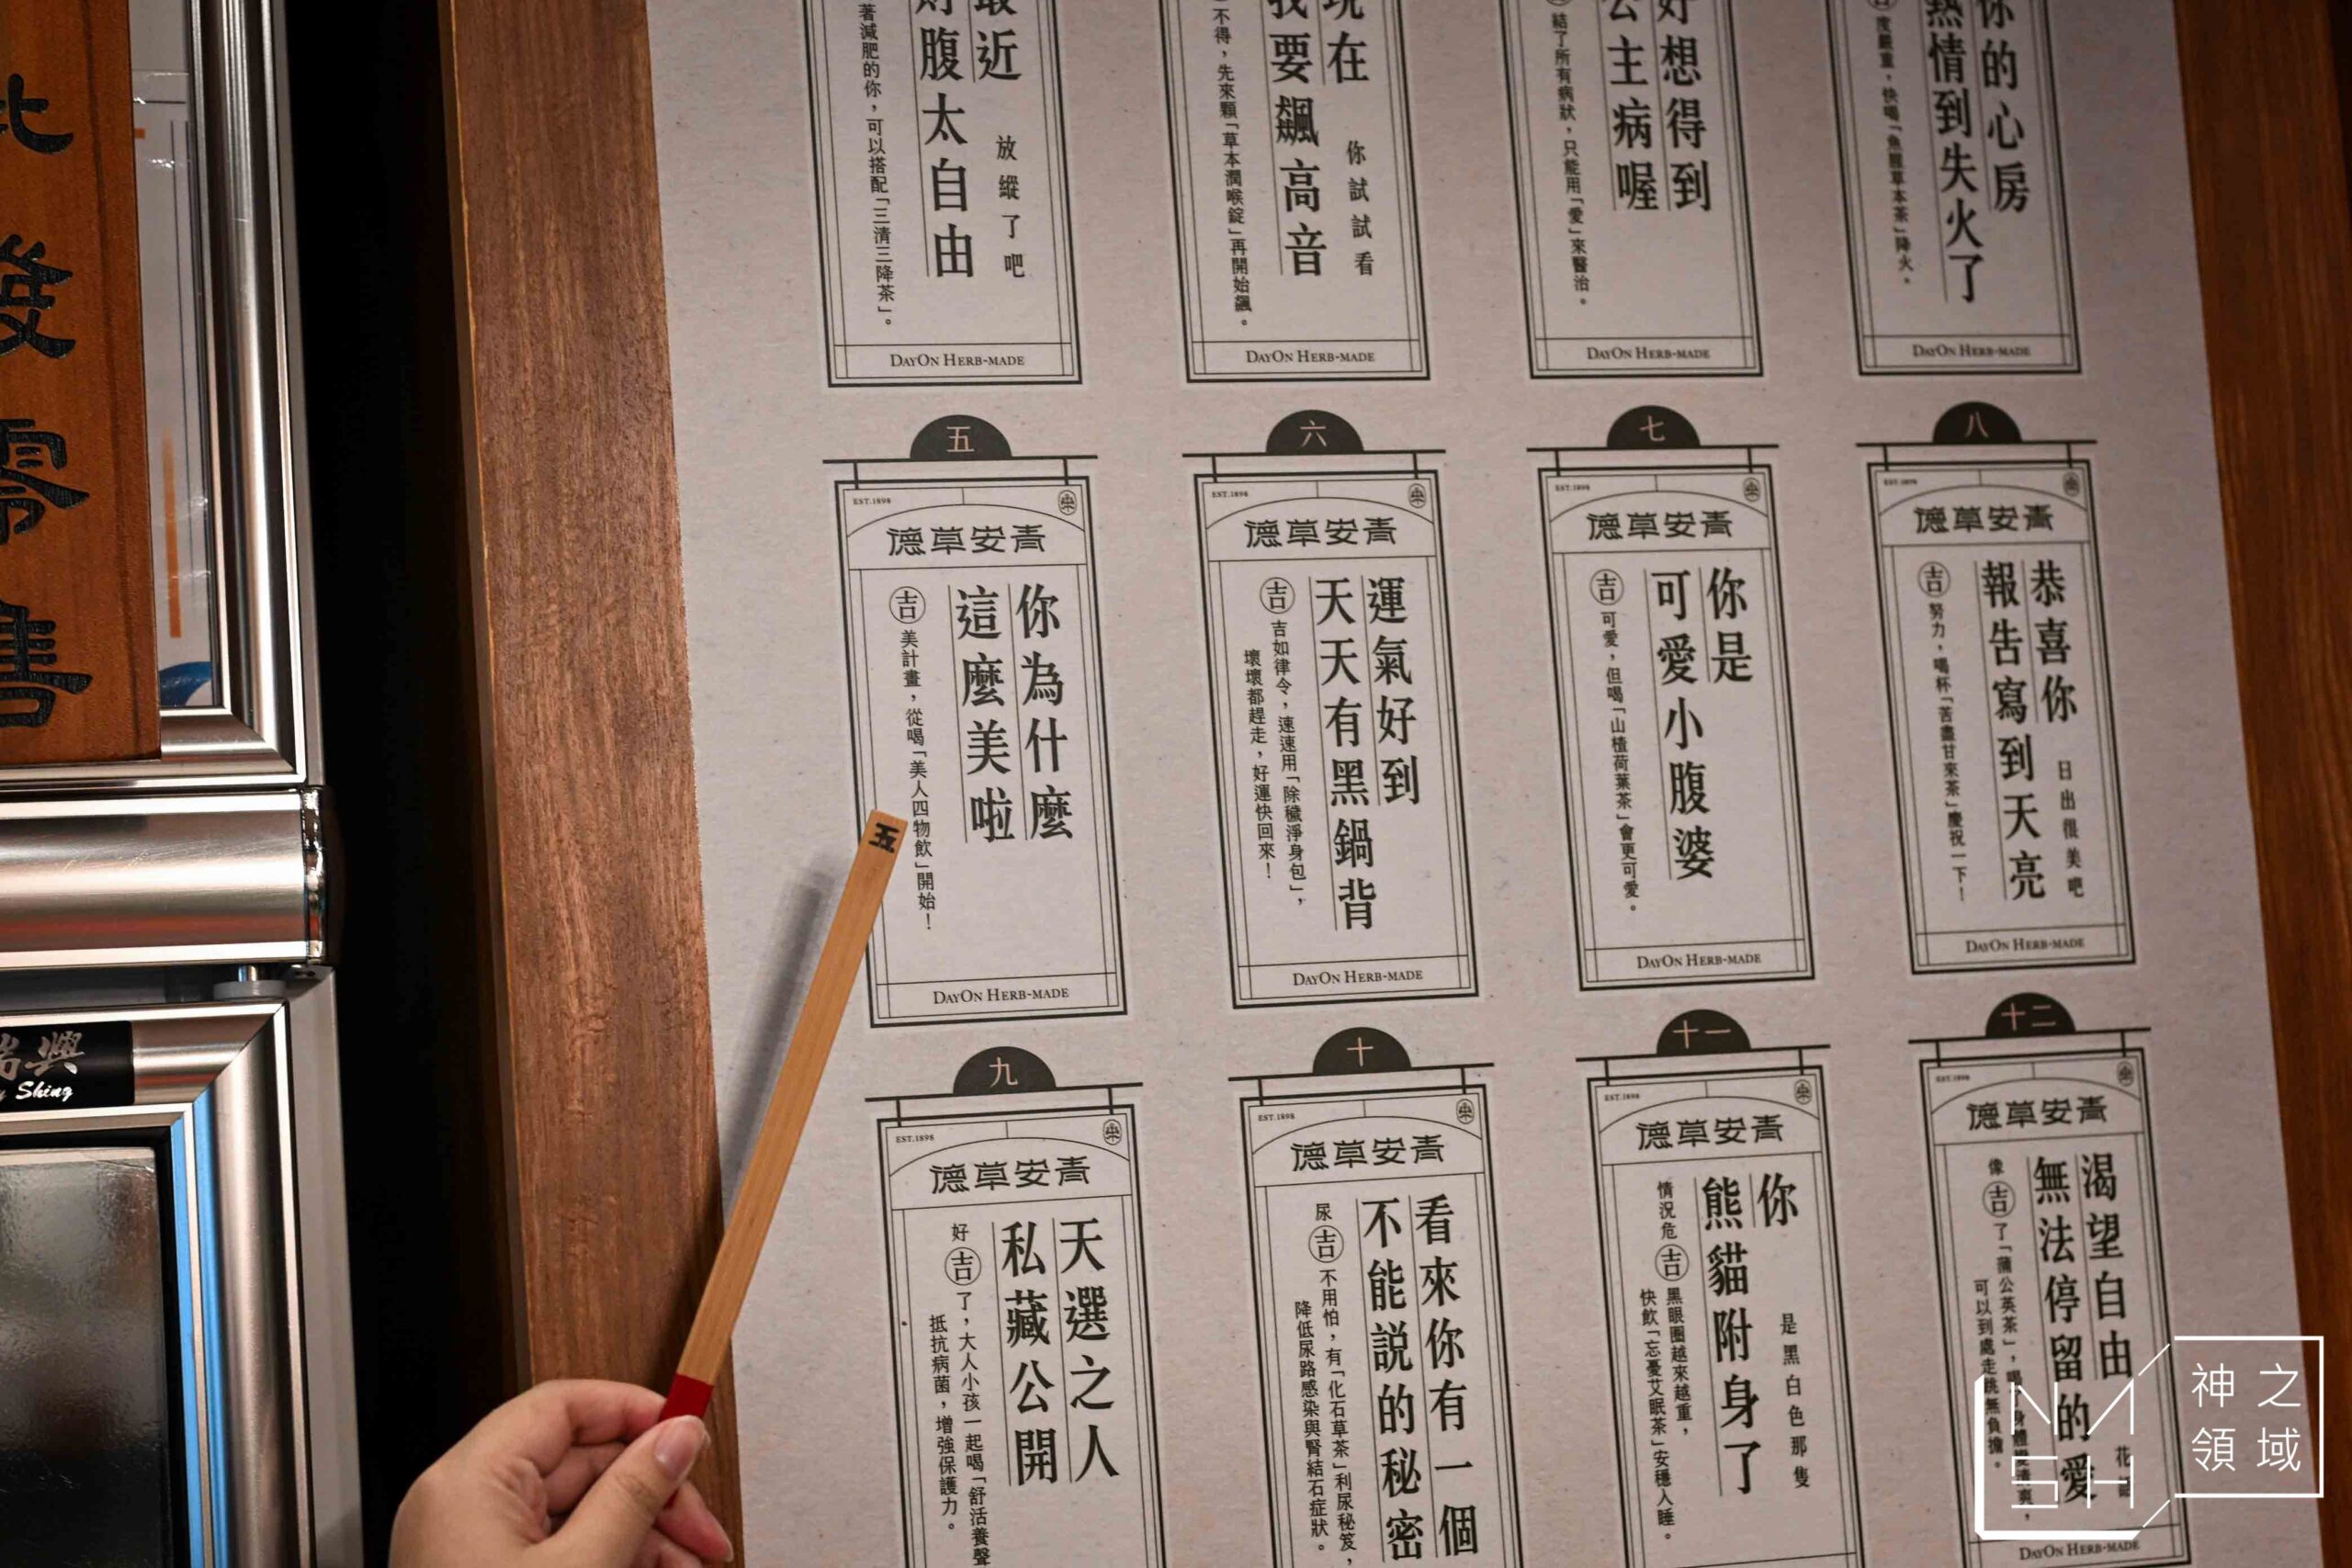 最近
腹太自由
放縱了吧
著減肥的你，可以搭配「三清三降茶」。
DAYON HERB-MADE
現在
我要飆高音
你試試看
不得，先來顆「草本潤喉錠」再開始飆。
DAYON HERB-MADE
好想得到
公主病喔
結了所有病狀，只能用「愛」來醫治。
DAYON HERB-MADE
你的心房
熱情到失火了
度嚴重，快喝「魚腥草本茶」降火。
DAYON HERB-MADE
五
EST.1898
德草安青
你為什麼
這麼美啦
吉 美計畫，從喝「美人四物飲」開始！
DAYON HERB-MADE
六
EST.1898
德草安青
運氣好到
天天有黑鍋背
吉 吉如律令，速速用「除穢淨身包」，
壞壞都趕走，好運快回來！
DAYON HERB-MADE
七
EST.1898
德草安青
你是
可愛小腹婆
吉 可愛，但喝「山楂荷葉茶」會更可愛。
DAYON HERB-MADE
八
EST.1898
德草安青
恭喜你
報告寫到天亮
日出很美吧
吉 努力，喝杯「苦盡甘來茶」慶祝一下！
DAYON HERB-MADE
九
EST.1898
德草安青
天選之人
私藏公開
好吉了，大人小孩一起喝「舒活養聲
抵抗病菌，增強保護力。
十
EST.1898
德草安青
看來你有一個
不能説的秘密
尿吉 不用怕，有「化石草茶」利尿秘笈，
降低尿路感染與腎結石症狀。
十一
EST.1898
德草安青
你
熊貓附身了
是黑白色那隻
情況危吉 黑眼圈越來越重，
快飲「忘憂艾眠茶」安穩入睡。
十二
EST.1898
德草安青
渴望自由
無法停留的愛
像吉了「蒲公英茶」，
可以到處走跳無負擔。
DAYON HERB-MADE
五
零售
興
Shing
NM
SH
神之
領域